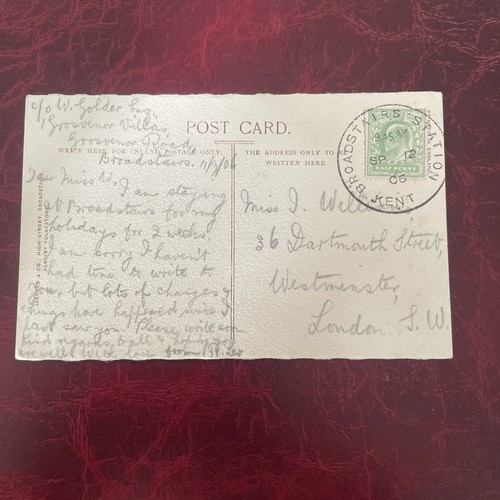 c/o W. Golder Esq
1 Grosvenor Villas,
Grosvenor Road
Broadstairs. 11/9/06
POST CARD.
WRITE HERE FOR INLAND POSTAGE ONLY.
THE ADDRESS ONLY TO BE
WRITTEN HERE.
Dear Miss W,
I am staying
at Broadstairs for my
holidays for 2 weeks.
I am sorry I haven't
had time to write to
you, but lots of changes &
things have happened, since I
last saw you. Please write soon
Kind regards to all & hoping you
are well. With love from
Miss I.
36 Dartmouth Street,
Westminster,
London. S. W.
BROADSTAIRS STATION
SP 12
06
KENT
HALF PENNY
& CO., HIGH STREET, BROADSTAIRS